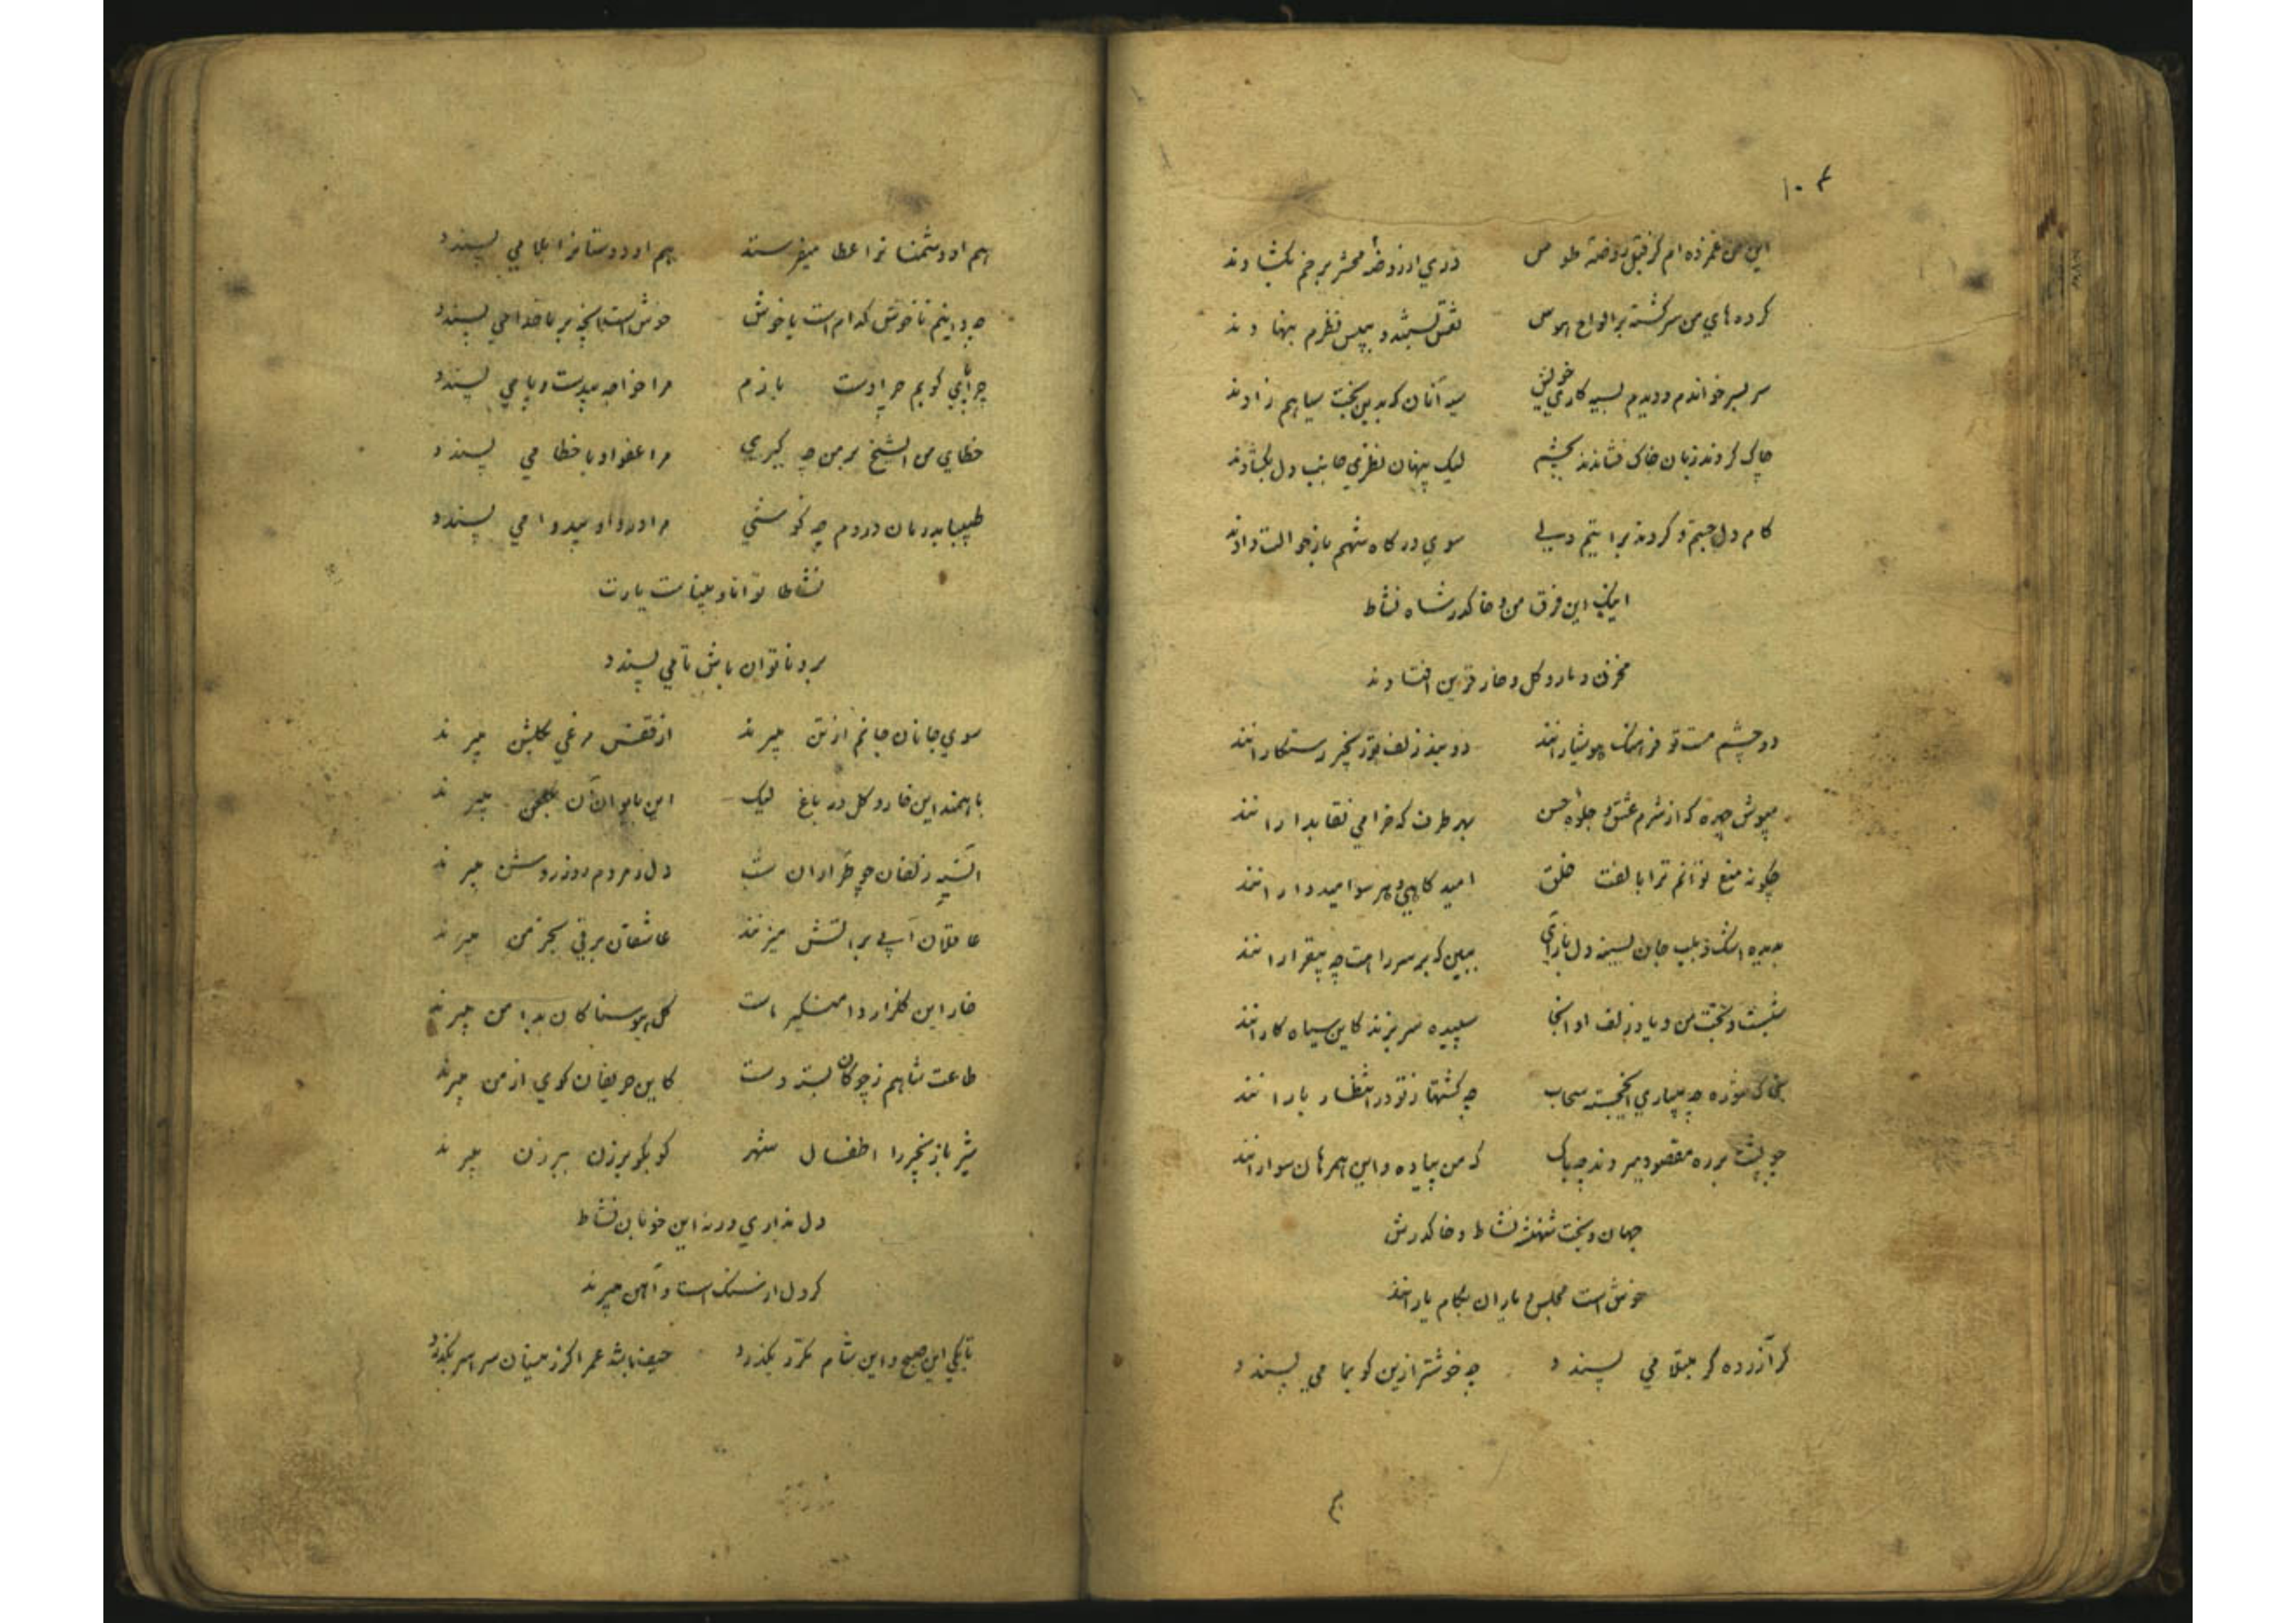 ۱۰۴
این من غمزده ام کز قبل روضه طوس دری از روضه محشر برخم بگشادند
کرده های من سرگشته بر الواح نقش ببستند و به پیش نظرم بنهادند
سر بسر خواندم و دیدم بسیه کاری خویش آنان که بدین بخت سیاهم زادند
چاک کردند زبان خاک فشاندند بچشم لیک پنهان نظری جانب دل بگشادند
کام دل جستم و کردند براتیم ولی سوی درگاه شهم باز حوالت دادند
اینک این فرق من و خاک در شاه نشاط
مخزن و مار و گل و خار قرین افتادند
دو چشم مست تو فرهنگ هوشیارانند دو بند زلف تو زنجیر رستگارانند
مپوش چهره که از شرم عشق و جلوه حسن بهر طرف که خرامی نقابدارانند
چگونه منع توانم ترا بالفت خلق امیدگاهی و هر سو امیدوارانند
بدیده اشک و بلب جان بسینه دل بازآی ببین که بر سر راهت چه بیقرارانند
شبست و بخت من و یاد زلف او اینجا سپیده سر نزند کاین سیاه کارانند
بخاک مژده چه میاری ای خجسته سحاب چه کشتها ز تو در انتظار بارانند
چو پشت بر ره مقصود میروند چه باک که من پیاده و این همرهان سوارانند
جهان و بخت شهنشه نشاط و خاک درش
خوش است مجلس و یاران بکام یارانند
گر آزرده گر مبتلا می پسندد چه خوشتر ازین کو بما می پسندد
۴
هم او دشمنانرا عطا میفرستد هم او دوستانرا بلا می پسندد
چه دانیم ناخوش کدام است یا خوش خوش است آنچه بر ما خدا می پسندد
چرا پای کویم چرا دست یازم مرا خواجه بیدست و پا می پسندد
خطای من ای شیخ بر من چه گیری مرا عفو او با خطا می پسندد
طبیبا بدرمان دردم چه کوشی مرا درد او بیدوا می پسندد
نشاطا توانا و بیناست یارت
برو ناتوان باش تا می پسندد
سوی جانان جانم از تن میبرند از قفس مرغی بگلشن میبرند
باهمند این خار و گل در باغ لیک این بایوان آن بگلخن میبرند
آن سیه زلفان چو طراران شب دل ز مردم روز روشن میبرند
عاقلان آبی بر آتش میزنند عاشقان برقی بخرمن میبرند
خار این گلزار دامنگیر ماست گل هوسناکان بدامن میبرند
طاعت شاهم ز چوگان بسته دست کاین حریفان گوی از من میبرند
شیر با زنجیر را اطفال شهر کو بکو برزن ببرزن میبرند
دل نداری ورنه این خوبان نشاط
گر دل از سنگ است و آهن میبرند
تا بکی این صبح و این شام مکرر بگذرد حیف باشد عمر اگر زینسان سراسر بگذرد